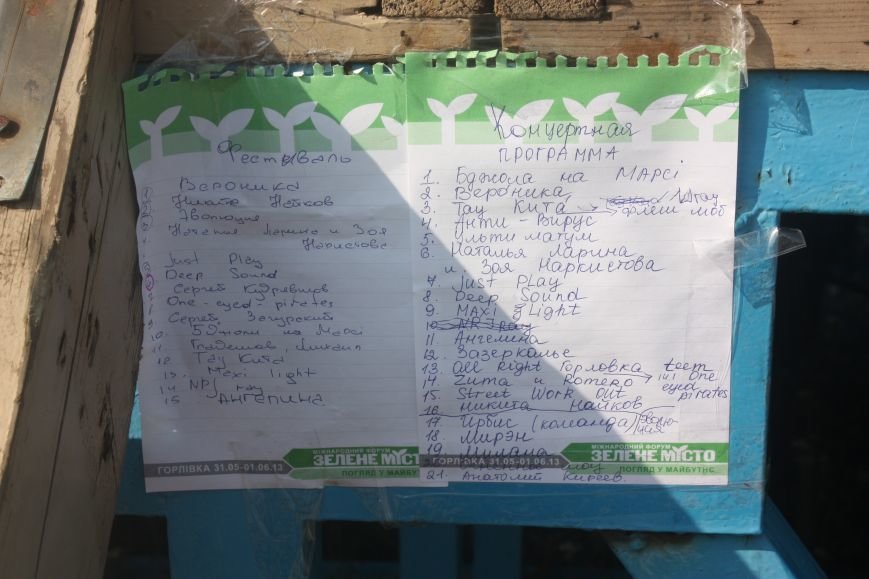 Фестиваль
Вероника
Никита Найков
Эволюция
Наталия Ларина и Зоя
Наркистова
Just Play
Deep Sound
Сергей Кудрявцев
One-eyed-pirates
Сергей Загурский
10. Бджоли на Марсі
11.
12. Тау Кита
13. Maxi light
14. NRJ ray
15. АНГЕЛИНА
МІЖНАРОДНИЙ ФОРУМ
ЗЕЛЕНЕ МІСТО
ГОРЛІВКА 31.05-01.06.13
ПОГЛЯД У МАЙБУТНЄ
Концертная
ПРОГРАММА
1. Бджола на МАРСІ
2. Вероника
3. Тау Кита
флеш моб
4. Анти-Вирус
5. Ультиматум
6. Наталья Ларина
и Зоя Наркистова
7. Just PLay
8. Deep Sound
9. MAXi Light
10 NRJ Ray
11 Ангелина
12. Зазеркалье
13. all Right Горловка teem
14. Zuma и Romero 14) One
eyed
15. Street Work out pirates
16 Никита Найков
17. Ирбис (команда)
18. Мирэн
19. Милана
МІЖНАРОДНИЙ ФОРУМ
ЗЕЛЕНЕ МІСТО
ГОРЛІВКА 31.05-01.06.13
ПОГЛЯД У МАЙБУТНЄ
21. Анатолий Киреев.